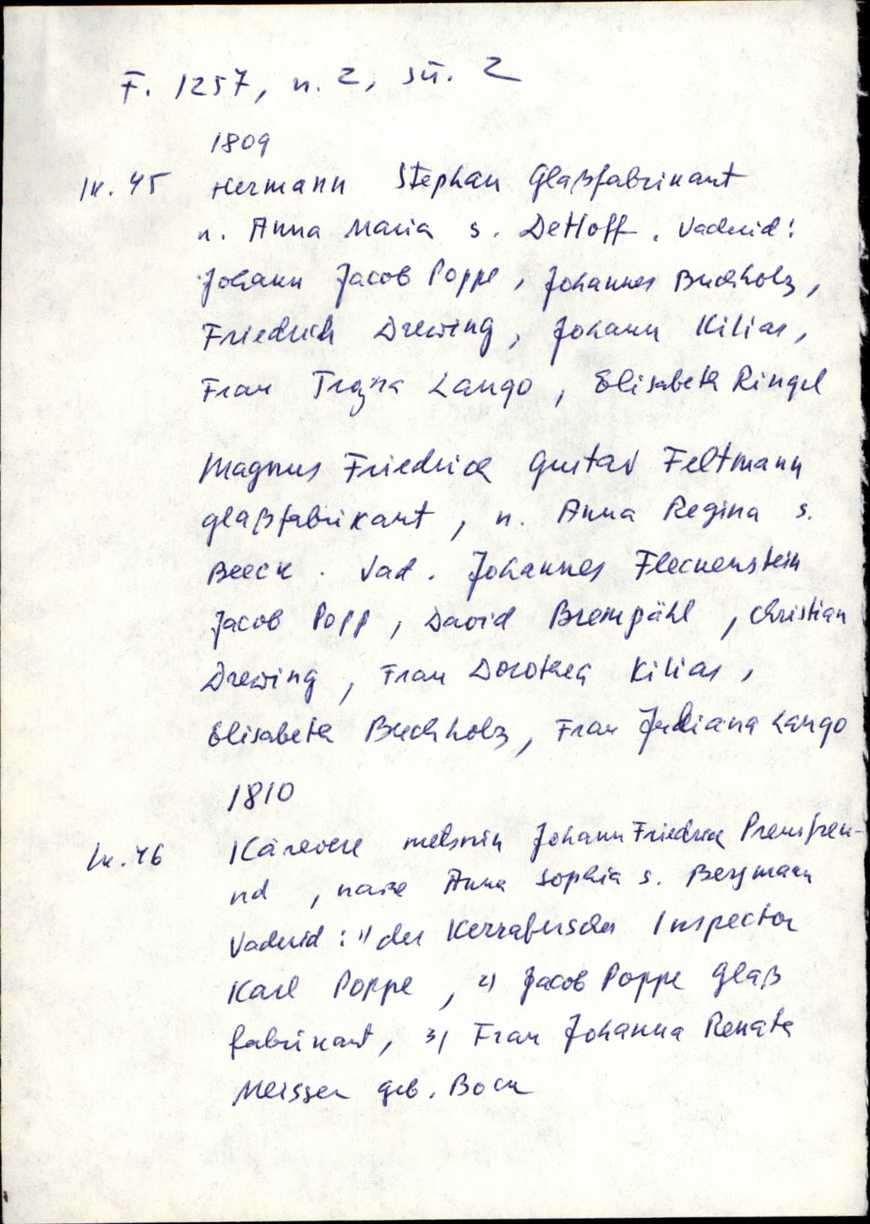 F. 1257, n. 2, sü. 2
1809
lk. 45 Hermann Stephan Glaßfabrikant
n. Anna Maria s. Dethoff. Vaderid:
Johann Jacob Poppe, Johannes Buchholz,
Friedrich Drewing, Johann Kilias,
Frau Lango, Elisabeth Ringel
Magnus Friedrich Gustav Feltmann
glaßfabrikant, n. Anna Regina s.
Beeck. Vad. Johannes Fleckenstein
Jacob Popp, David Brempähl, Christian
Drewing, Frau Dorothea Kilias,
Elisabeth Buchholz, Frau Juliana Lango
1810
lk. 46 Kärevere metsnik Johann Friedrich Preusfreu-
nd, naine Anna Sophia s. Bergmann
Vaderid: 1) der Kerrafersche Inspector
Karl Poppe, 2) Jacob Poppe Glaß
fabrikant, 3) Frau Johanna Renata
Meisser geb. Bock